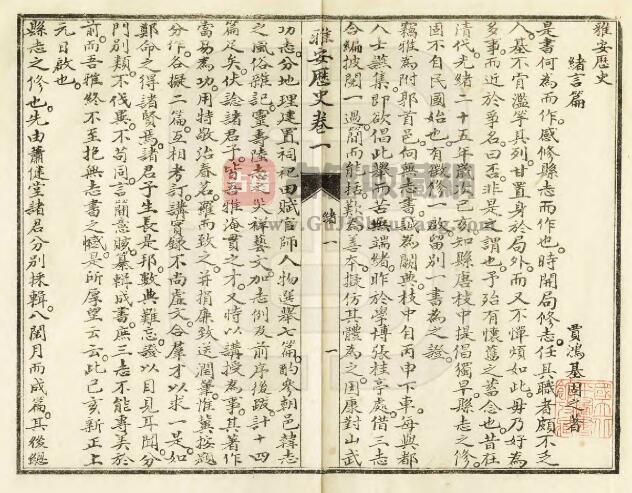 雅安歷史
緒言篇
賈鴻基圖之著
是書何為而作。感修縣志而作也。時開局修志。任其職者頗不乏
人。基不肖濫竽其列。甘置身於局外。而又不憚煩如此。毋乃好為
多事而近於爭名。曰否。非是之謂也。予殆有懷舊之蓄念也。昔在
清代光緒二十五年歲次己亥。知縣唐枝中提倡獨早。縣志之修
國不自民國始也。有戡修一啟。留別一書為之證。
竊雅為附郭首邑。向無志書。誠為闕典。枝中自丙申下車。每與都
人士讌集。即欲倡此舉而苦無端緒。昨於學博張桂亭處借三志
合編披閱一過。簡而能括。歎為善本。擬仿其體為之。因康對山武
雅安歷史卷一
緒一
一
功志。分地理建置祠祀田賦官師人物選舉七篇。酌參朝邑韓志
之風俗雜記。靈壽陸志之災祥藝文。加志例及前序後跋。計十四
篇足矣。伏諗諸君子。皆吾雅海貫之才。又特以講授為事。其著作
當易為功。用特敬治春茗。羅而致之。并捐廉致送潤筆。惟冀按題
分作。各擬二篇。互相考訂。講實錄不尚虛文。合羣才以求一是。如
鄭命之得諸賢焉。諸君子生長是邦。數典難忘。證以目見耳聞。分
門別類。不伐異。不苟同。言簡意賅。纂輯成書。庶三志不能專美於
前。而吾雅終不至抱無志書之憾。是所厚望云云。此己亥新正上
元日啟也。
縣志之修也。先由蕭健堂諸君分別採輯。八閱月而成篇。其後總
www.GuJiShuFang.com